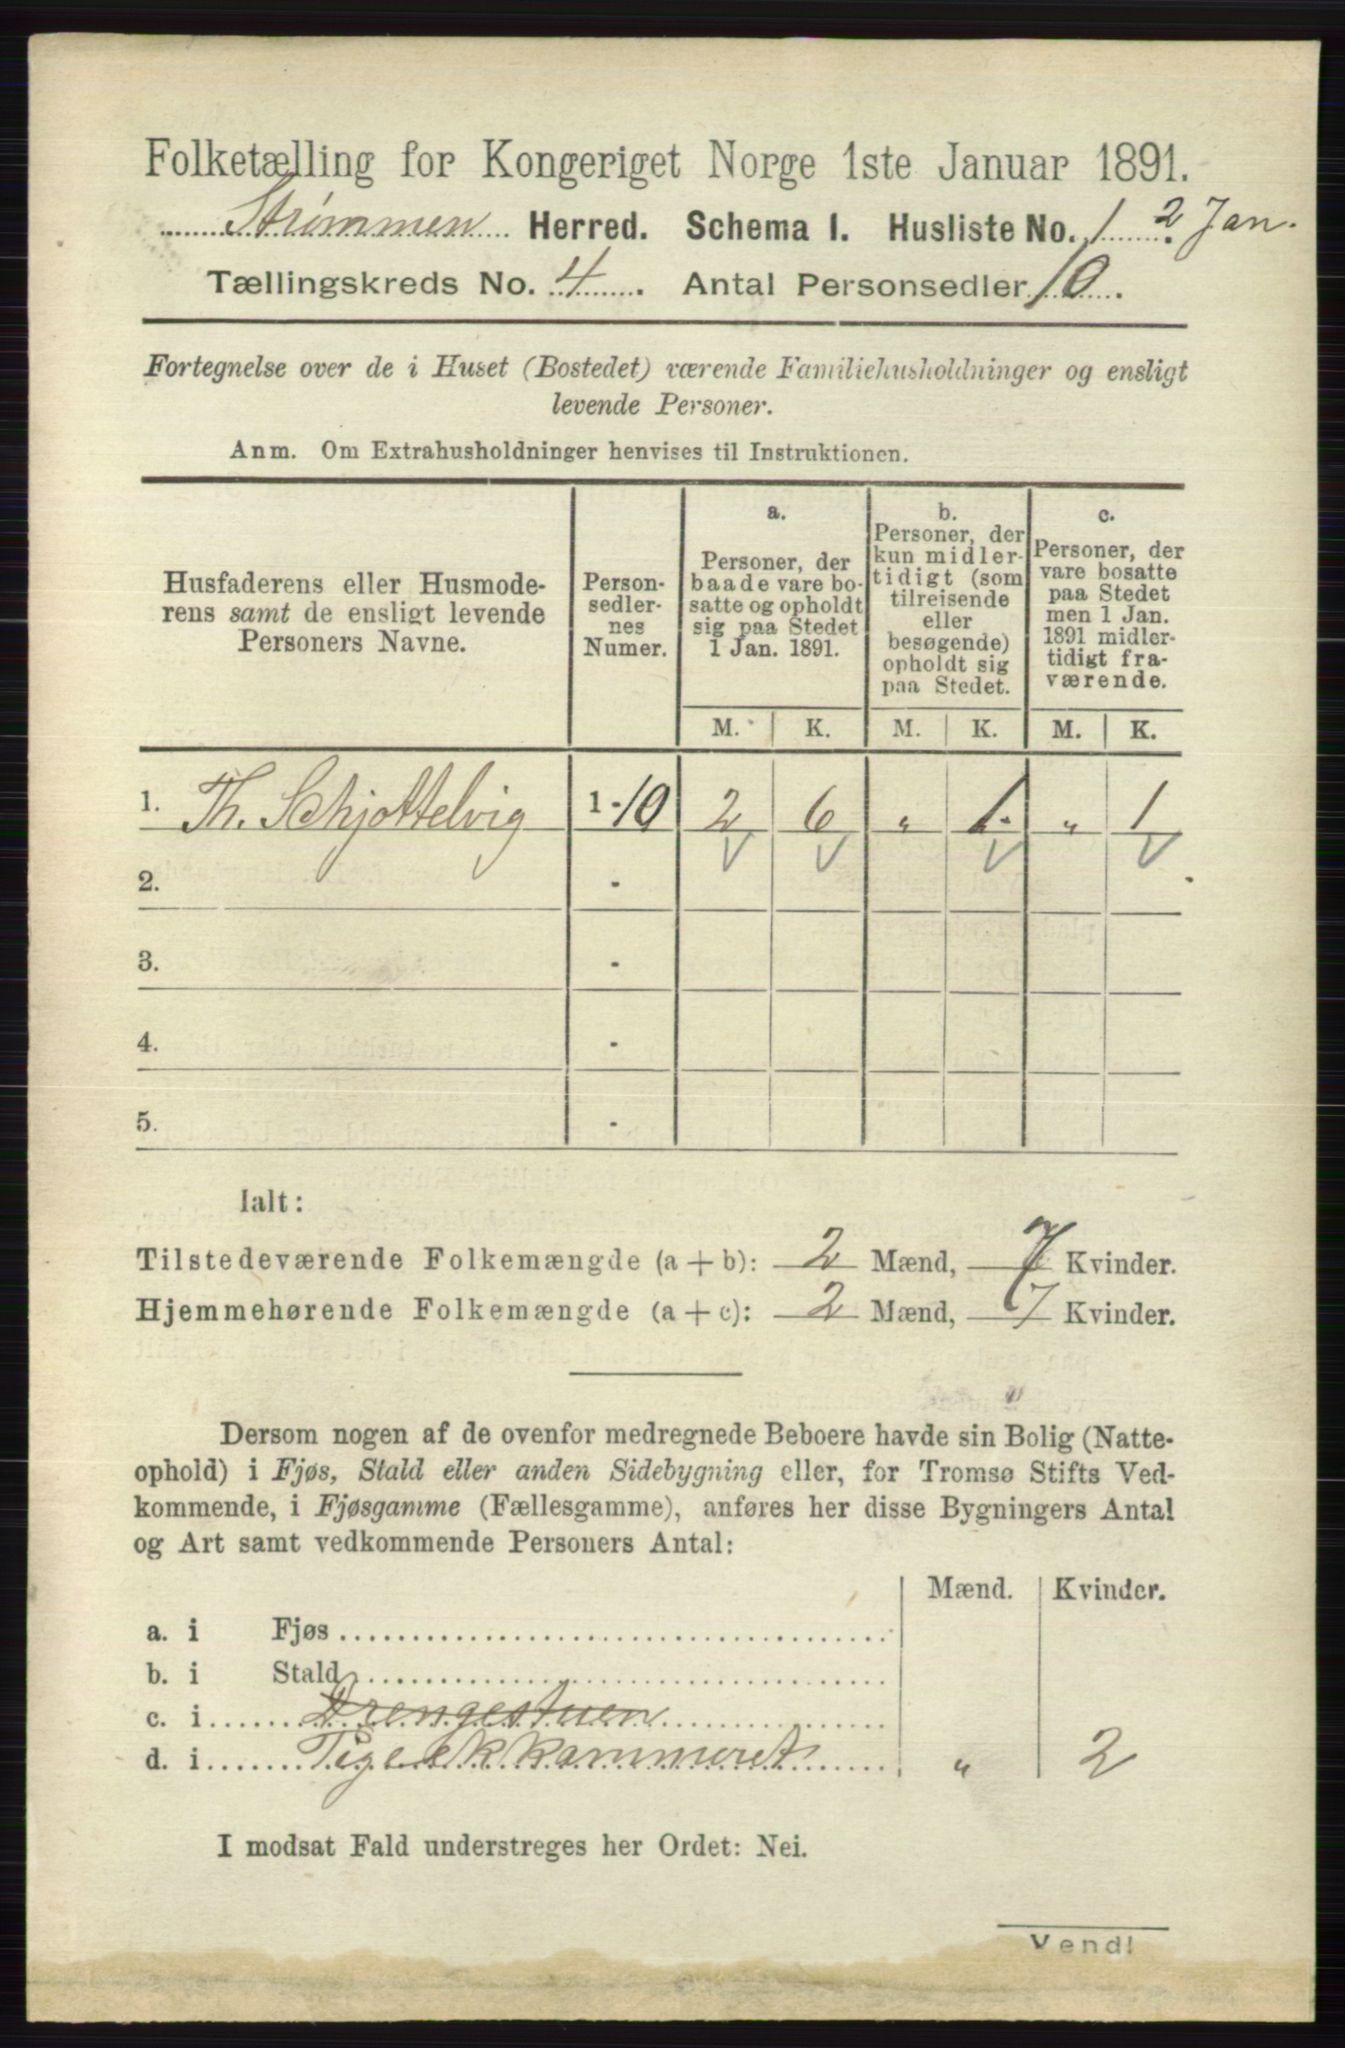 Folketælling for Kongeriget Norge 1ste Januar 1891.
Strømmen Herred. Schema I. Husliste No. 1 2 Jan.
Tællingskreds No. 4. Antal Personsedler 10.
Fortegnelse over de i Huset (Bostedet) værende Familiehusholdninger og ensligt
levende Personer.
Anm. Om Extrahusholdninger henvises til Instruktionen.
Husfaderens eller Husmode-
rens samt de ensligt levende
Personers Navne.
Person-
sedler-
nes
Numer.
a.
Personer, der
baade vare bo-
satte og opholdt
sig paa Stedet
1 Jan. 1891.
b.
Personer, der
kun midler-
tidigt (som
tilreisende
eller
besøgende)
opholdt sig
paa Stedet.
c.
Personer, der
vare bosatte
paa Stedet
men 1 Jan.
1891 midler-
tidigt fra-
værende.
M. K. M. K. M. K.
1. Th. Schjottelvig 1-10 2 6 „ 1 „ 1
2. -
3. -
4. -
5. -
Ialt:
Tilstedeværende Folkemængde (a + b): 2 Mænd, 7 Kvinder.
Hjemmehørende Folkemængde (a + c): 2 Mænd, 7 Kvinder.
Dersom nogen af de ovenfor medregnede Beboere havde sin Bolig (Natte-
ophold) i Fjøs, Stald eller anden Sidebygning eller, for Tromsø Stifts Ved-
kommende, i Fjøsgamme (Fællesgamme), anføres her disse Bygningers Antal
og Art samt vedkommende Personers Antal:
Mænd. Kvinder.
a. i Fjøs
b. i Stald
c. i Drengestuen
d. i „ 2
I modsat Fald understreges her Ordet: Nei.
Vend!